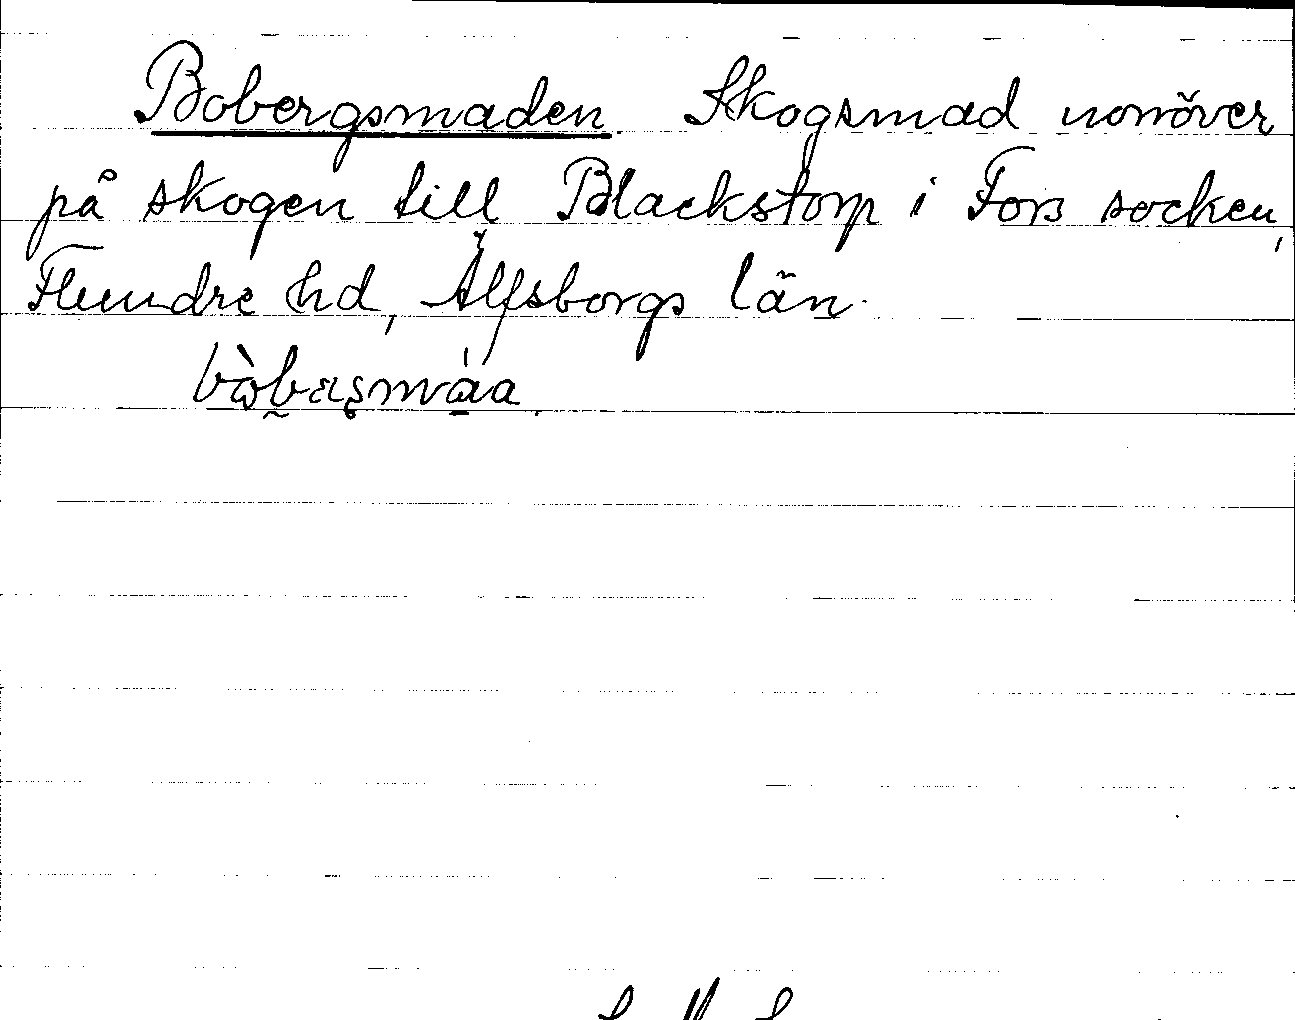 Bobergsmaden. Skogsmad norröver
på skogen till Blackstorp i Fors socken,
Flundre hd, Älfsborgs län.